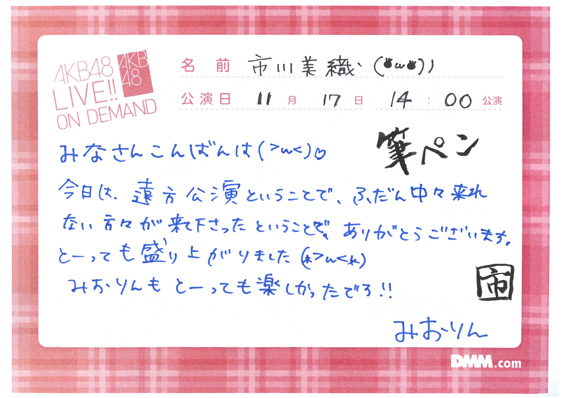 AKB48
LIVE!!
ON DEMAND
AKB
48
名前 市川美織 (●ω●))
公演日 11月17日 14:00公演
みなさんこんばんは(>ω<)♡
筆ペン
今日は、遠方公演ということで、ふだん中々来れ
ない方々が来て下さったということで。ありがとうございます。
とーっても盛り上がりました(*>ω<*)
みおりんもとーっても楽しかったでろ!!
市
みおりん
DMM.com